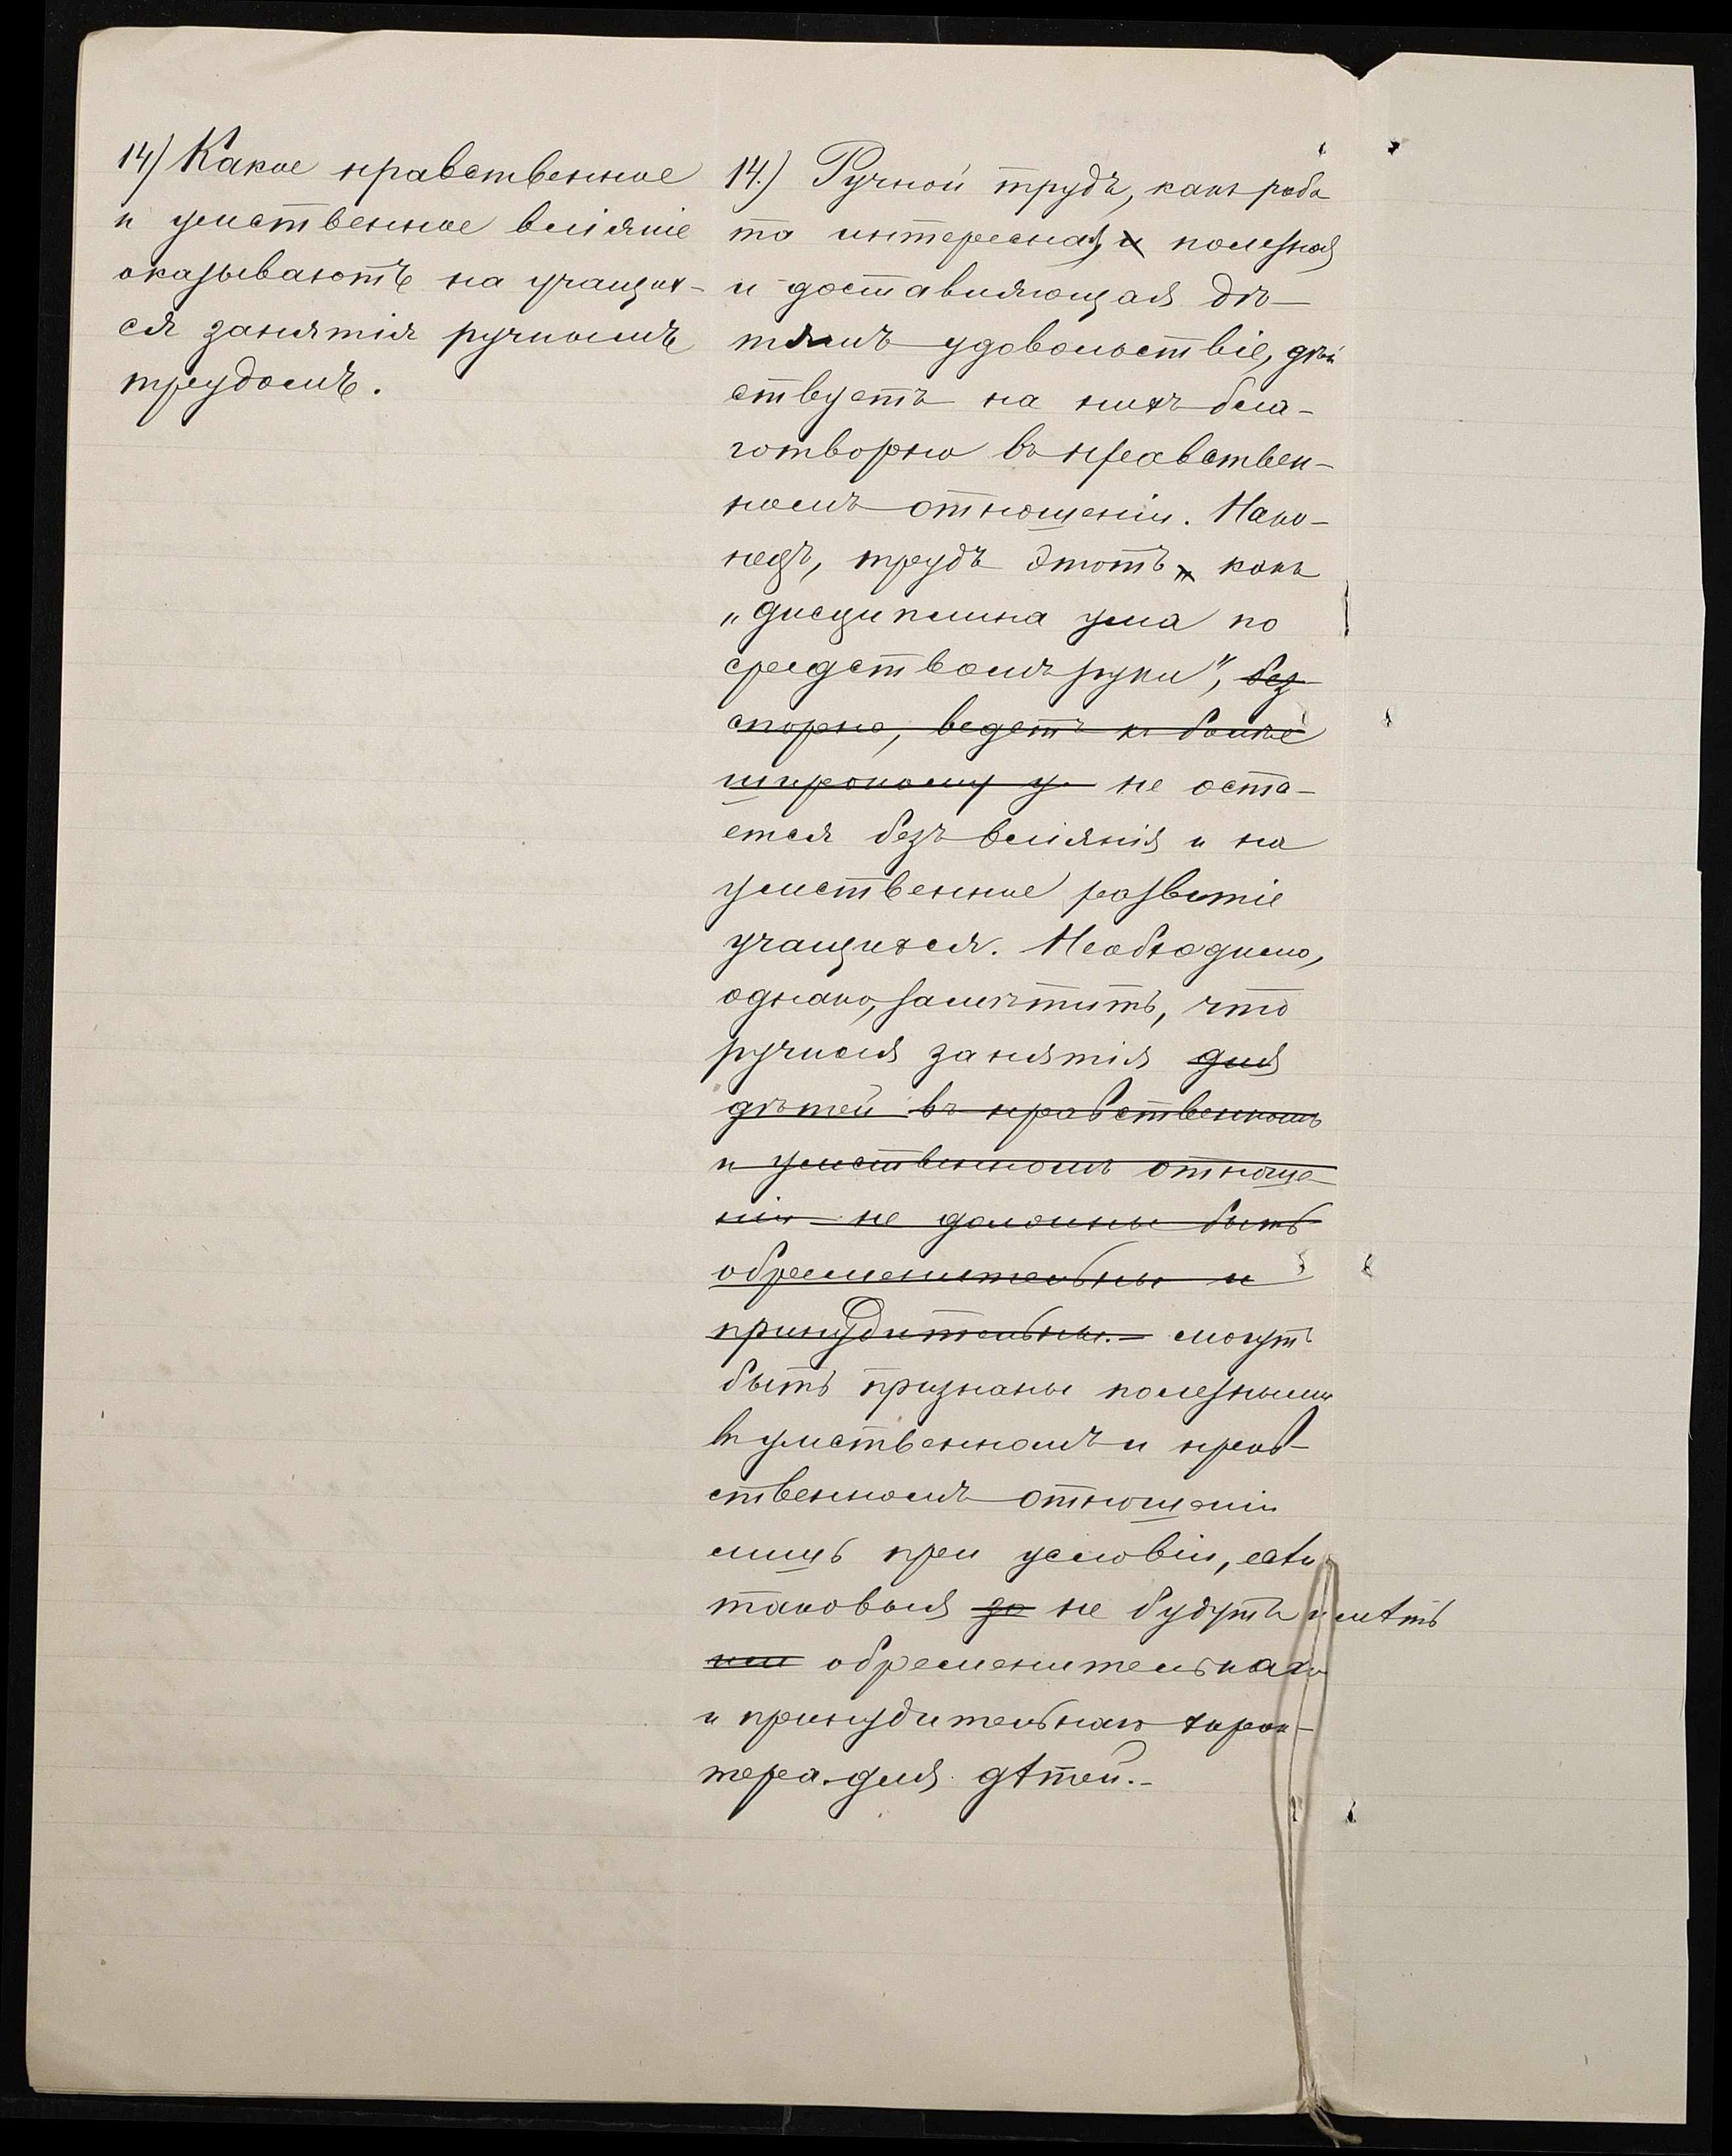 14) Какое нравственное
и умственное вліяніе
оказываютъ на учащих-
ся занятія ручнымъ
трудомъ.
14.) Ручной трудъ, какъ рабо
та интересная, и полезная
и доставляющая дѣ-
тямъ удовольствіе, дѣй
ствуетъ на нихъ бла-
готворно въ нравствен-
номъ отношеніи. Нако-
нецъ, трудъ этотъ, какъ
„дисциплина ума по
средствомъ руки", без
спорно, ведетъ къ болѣе
широкому у не оста-
ется безъ вліянія и на
умственное развитіе
учащихся. Необходимо,
однако, замѣтить, что
ручныя занятія для
дѣтей въ нравственномъ
и умственномъ отноше-
ніи не должны быть
обременительны и
принудительны. могутъ
быть признаны полезными
въ умственномъ и нрав-
ственномъ отношеніи
лишь при условіи, если
таковыя не будутъ имѣть
обременительнаго
и принудительнаго харак-
тера для дѣтей.-